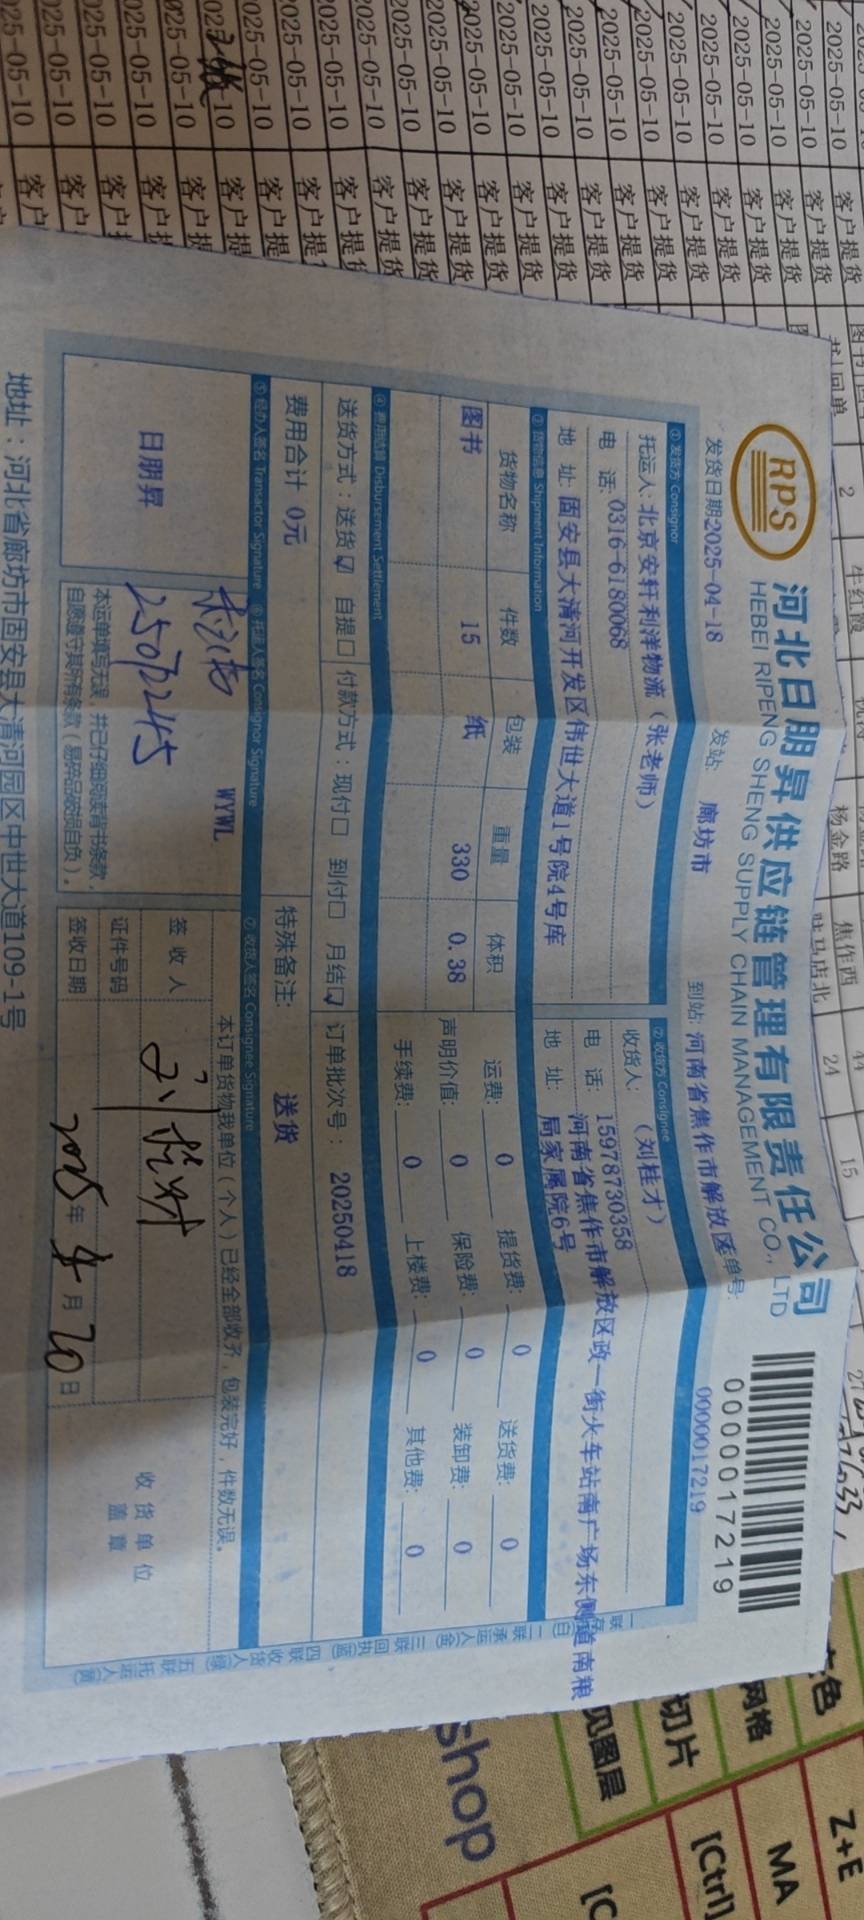 河北日朋昇供应链管理有限责任公司
HEBEI RIPENG SHENG SUPPLY CHAIN MANAGEMENT CO., LTD
RPS
0000017219
发货日期2025-04-18 发站: 廊坊市 到站: 河南省焦作市解放区 单号: 0000017219
①发货方 Consignor ②收货方 Consignee
托运人: 北京安轩利洋物流（张老师） 收货人: （刘桂才）
电 话: 0316-6180068 电 话: 15978730358
地 址: 固安县大清河开发区伟世大道1号院4号库 地 址: 河南省焦作市解放区政一街火车站南广场东侧道南粮
局家属院6号
③ 货物信息 Shipment Information
货物名称 件数 包装 重量 体积 运费: 0 提货费: 0 送货费: 0
图书 15 纸 330 0.38 声明价值: 0 保险费: 0 装卸费: 0
手续费: 0 上楼费: 0 其他费: 0
④ 费用结算 Disbursement Settlement
送货方式：送货☑ 自提☐ 付款方式：现付☐ 到付☐ 月结☑ 订单批次号： 20250418
费用合计 0元 特殊备注: 送货
⑤ 经办人签名 Transactor Signature ⑥ 托运人签名 Consignor Signature ⑦ 收货人签名 Consignee Signature
日朋昇
WYWL
本运单填写无误，并已仔细阅读背书条款，
自愿遵守其所有条款（易碎品破损自负）。
本订单货物我单位（个人）已经全部收齐，包装完好，件数无误。
签 收 人
证件号码
签收日期 2025年 4月 20日
收 货 单 位
盖 章
地址：河北省廊坊市固安县大清河园区中世大道109-1号
2025-05-10 客户提货
2025-05-10 客户提货
2025-05-10 客户提货
2025-05-10 客户提货
2025-05-10 客户提货
2025-05-10 客户提货
2025-05-10 客户提货
2025-05-10 客户提货
2025-05-10 客户提货
2025-05-10 客户提货
杨金路 焦作西
驻马店北 24
15
shop
见图层
切片
网格
[Ctrl]
MA
Z+E